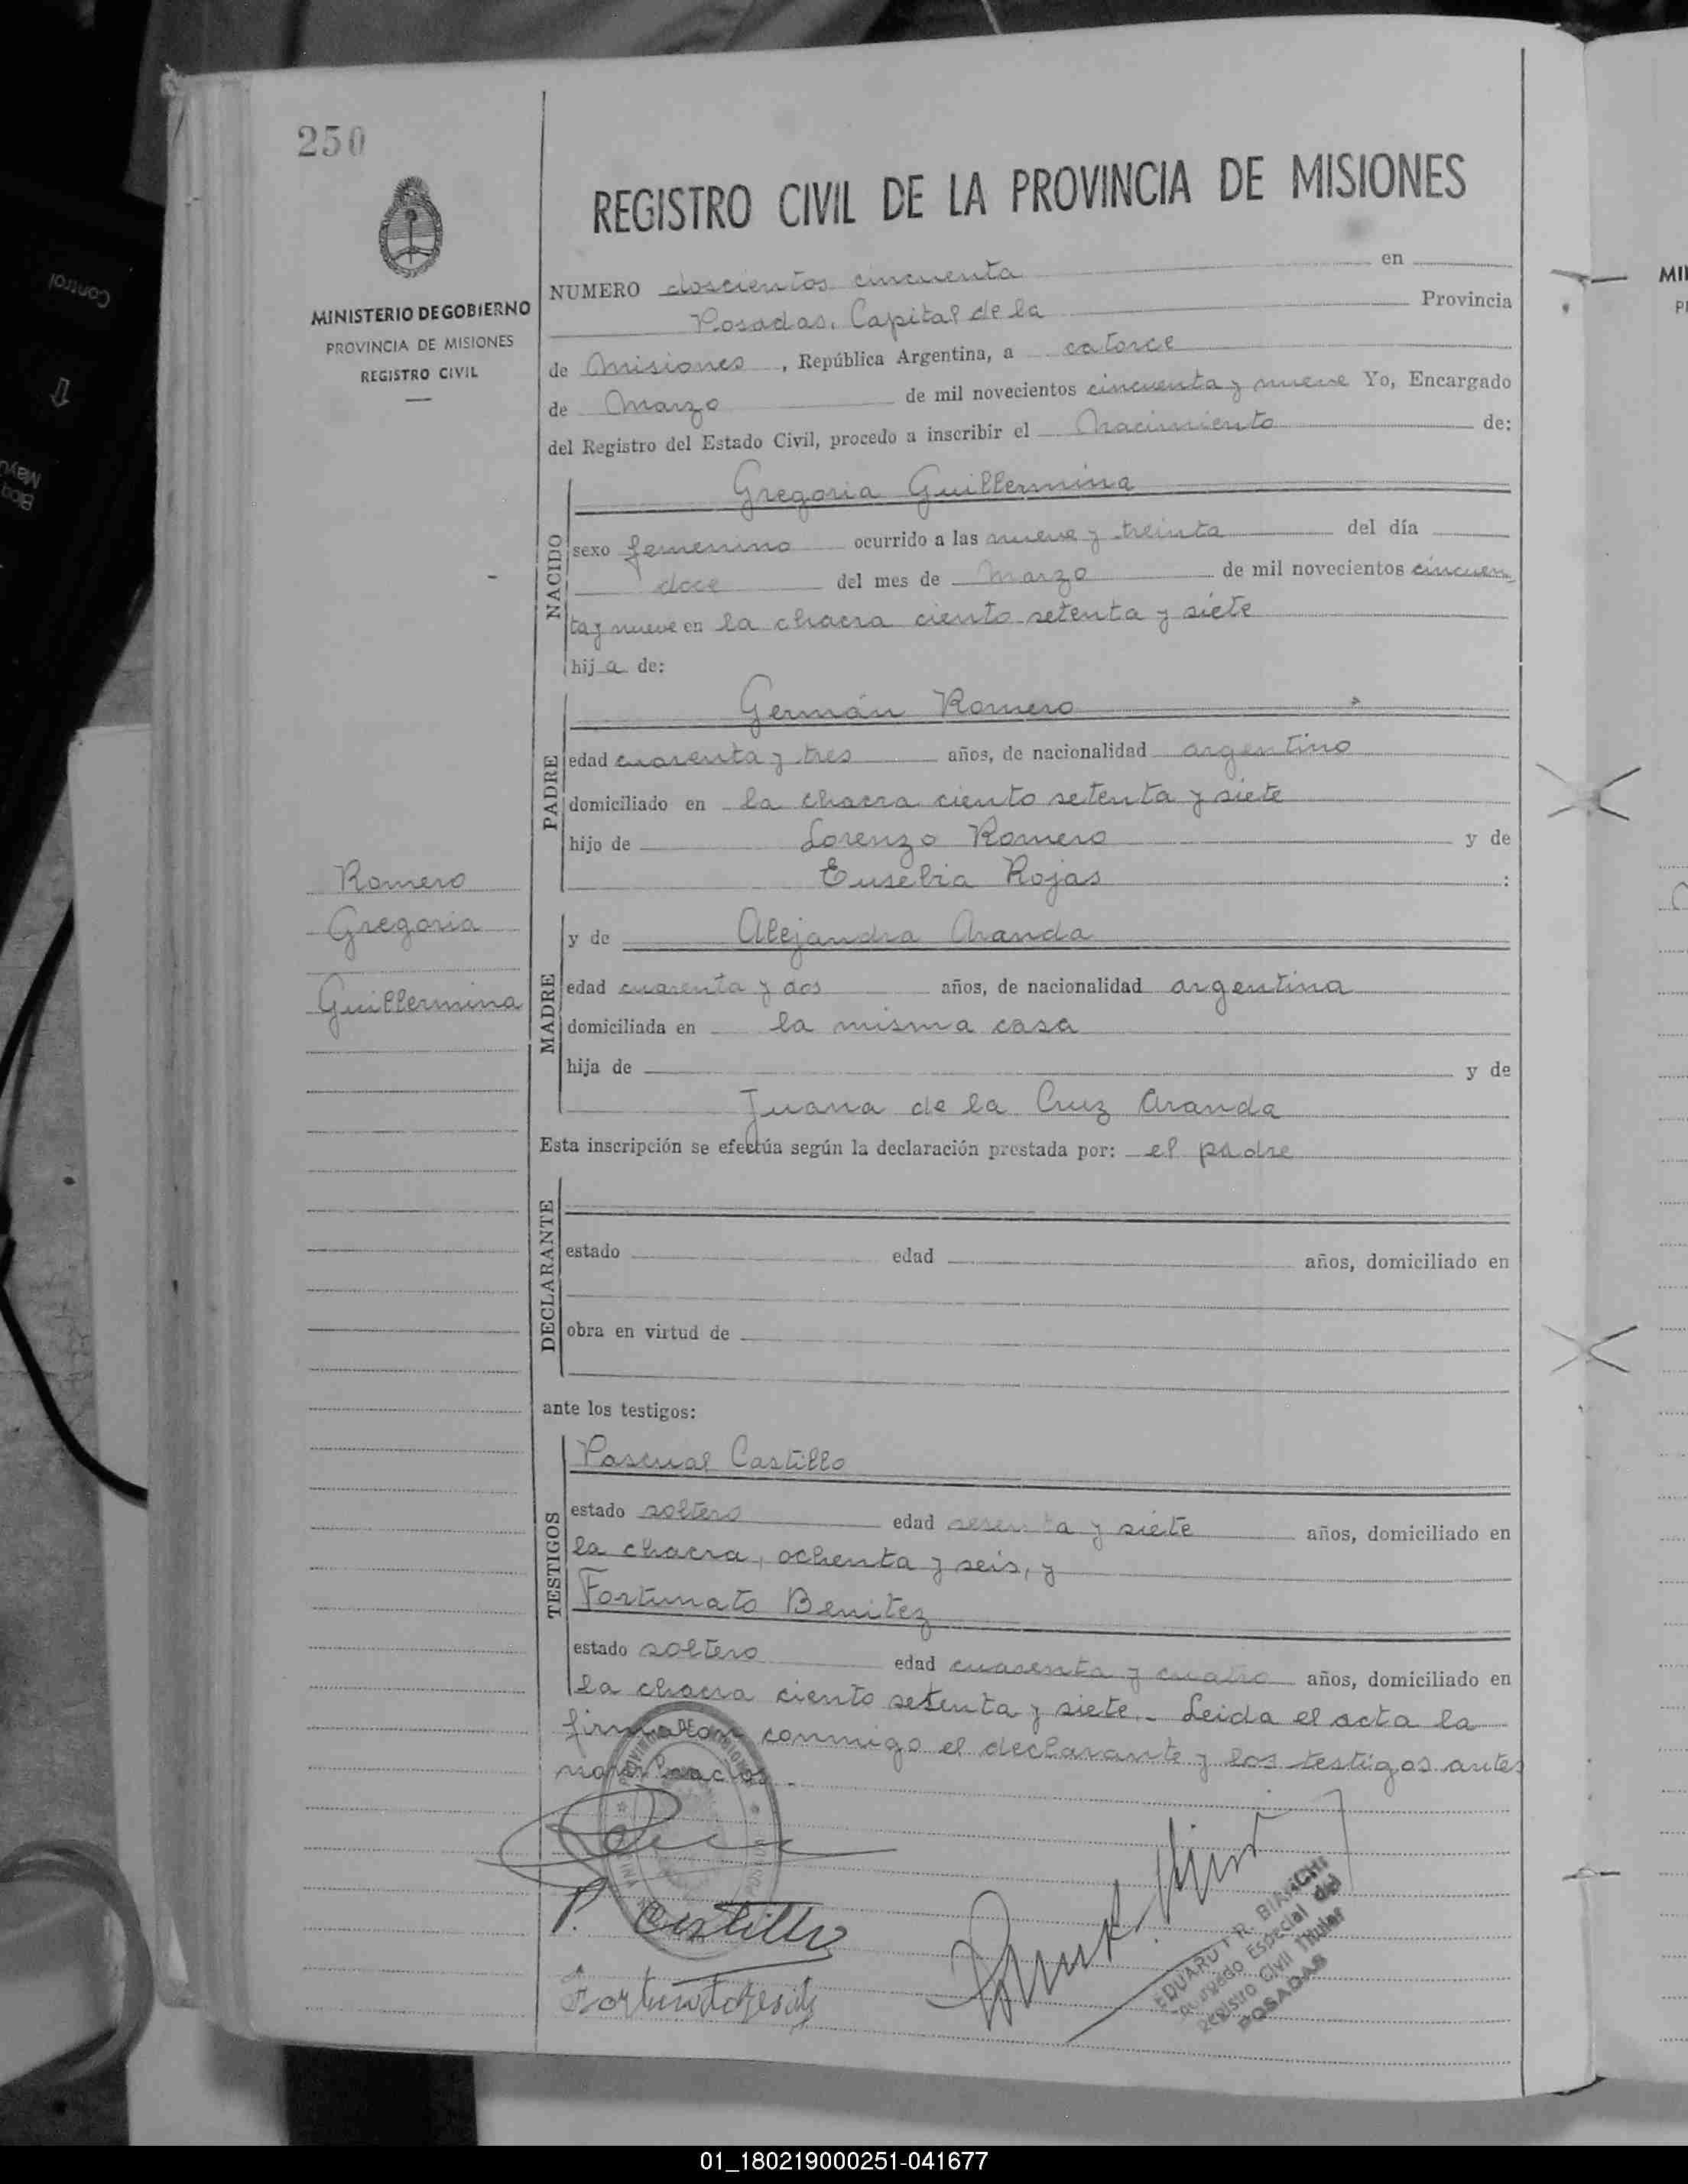 250
REGISTRO CIVIL DE LA PROVINCIA DE MISIONES
MINISTERIO DE GOBIERNO
PROVINCIA DE MISIONES
REGISTRO CIVIL
NUMERO doscientos cincuenta en
Posadas, Capital de la Provincia
de Misiones, República Argentina, a catorce
de Marzo de mil novecientos cincuenta y nueve Yo, Encargado
del Registro del Estado Civil, procedo a inscribir el Nacimiento de:
NACIDO
Gregoria Guillermina
sexo femenino ocurrido a las nueve y treinta del día
doce del mes de Marzo de mil novecientos cincuen
ta y nueve en la chacra ciento setenta y siete
hija de:
PADRE
Germán Romero
edad cuarenta y tres años, de nacionalidad argentino
domiciliado en la chacra ciento setenta y siete
hijo de Lorenzo Romero y de
Eusebia Rojas :
Romero
Gregoria
Guillermina
MADRE
y de Alejandra Aranda
edad cuarenta y dos años, de nacionalidad argentina
domiciliada en la misma casa
hija de y de
Juana de la Cruz Aranda
Esta inscripción se efectúa según la declaración prestada por: el padre
DECLARANTE
estado edad años, domiciliado en
obra en virtud de
ante los testigos:
TESTIGOS
Pascual Castillo
estado soltero edad y siete años, domiciliado en
la chacra, ochenta y seis, y
Fortunato Benitez
estado soltero edad cuarenta y cuatro años, domiciliado en
la chacra ciento setenta y siete.- Leida el acta la
firmaron conmigo el declarante y los testigos antes
nombrados.-
P. Castillo
EDUARDO R. BIANCHI
Encargado Especial del
Registro Civil Titular
POSADAS
Control
Bloq
Mayú
01_180219000251-041677